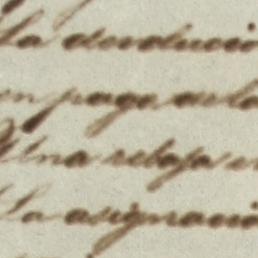 la devoluci
en pago de lo
Una rebaja en
la asignaci